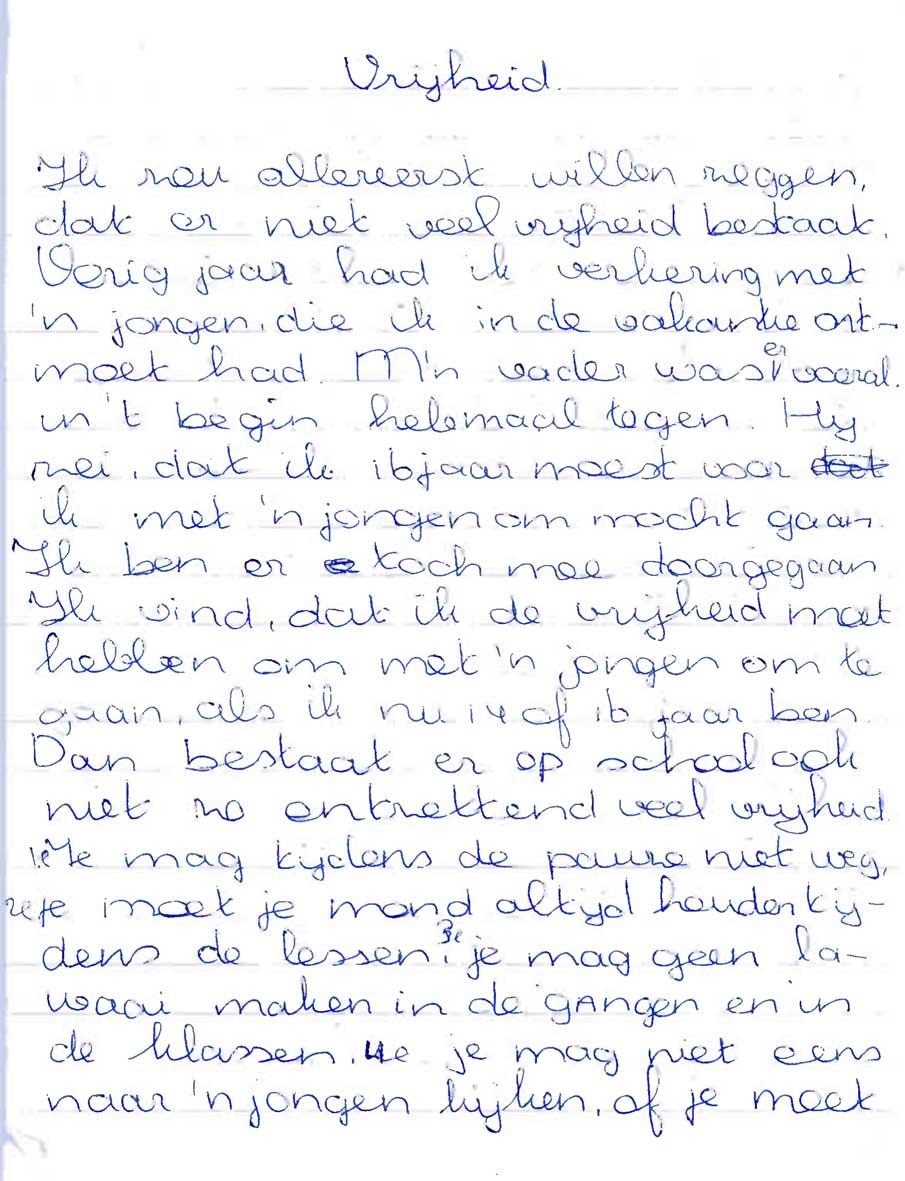 Vrijheid.
Ik zou allereerst willen zeggen,
dat er niet veel vrijheid bestaat.
Vorig jaar had ik verkering met
'n jongen, die ik in de vakantie ont-
moet had. M'n vader was er vooral
in 't begin helemaal tegen. Hij
zei, dat ik 16 jaar moest voor
ik met 'n jongen om mocht gaan.
Ik ben er toch mee doorgegaan
Ik vind, dat ik de vrijheid moet
hebben om met 'n jongen om te
gaan, als ik nu 14 of 16 jaar ben.
Dan bestaat er op school ook
niet zo ontzettend veel vrijheid.
1e Je mag tijdens de pauze niet weg,
2e je moet je mond altijd houden tij-
dens de lessen. 3e je mag geen la-
waai maken in de gangen en in
de klassen. 4e je mag niet eens
naar 'n jongen kijken, of je moet